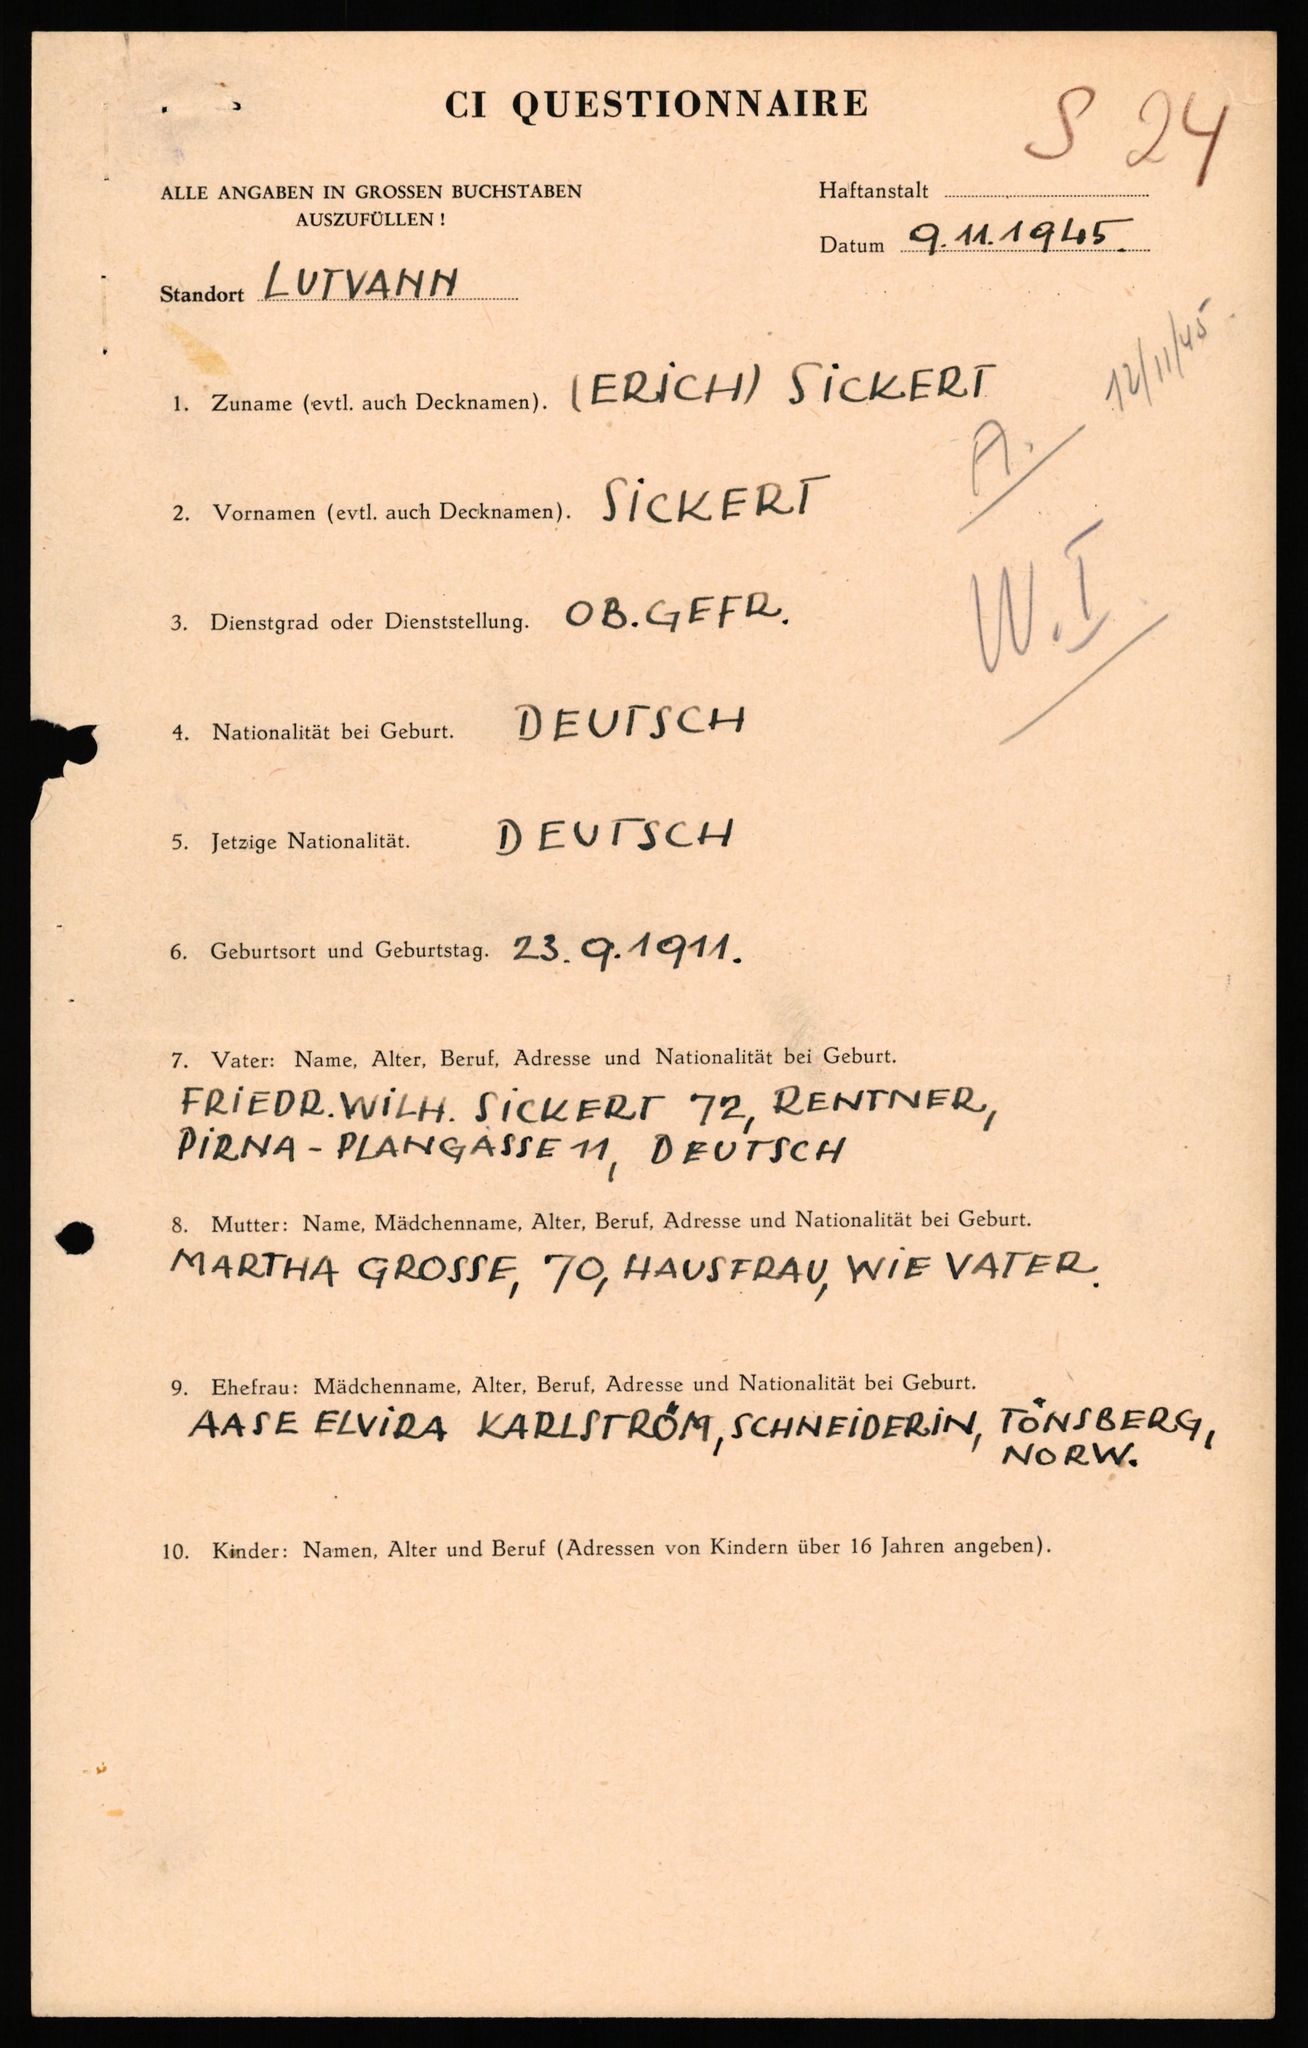 CI QUESTIONNAIRE
S 24
ALLE ANGABEN IN GROSSEN BUCHSTABEN
AUSZUFÜLLEN !
Haftanstalt
Datum 9.11.1945.
Standort LUTVANN
12/11/45
1. Zuname (evtl. auch Decknamen). (ERICH) SICKERT
A.
2. Vornamen (evtl. auch Decknamen). SICKERT
W.I
3. Dienstgrad oder Dienststellung. OB.GEFR.
4. Nationalität bei Geburt. DEUTSCH
5. Jetzige Nationalität. DEUTSCH
6. Geburtsort und Geburtstag. 23.9.1911.
7. Vater: Name, Alter, Beruf, Adresse und Nationalität bei Geburt.
FRIEDR. WILH. SICKERT 72, RENTNER,
PIRNA - PLANGASSE 11, DEUTSCH
8. Mutter: Name, Mädchenname, Alter, Beruf, Adresse und Nationalität bei Geburt.
MARTHA GROSSE, 70, HAUSFRAU, WIE VATER.
9. Ehefrau: Mädchenname, Alter, Beruf, Adresse und Nationalität bei Geburt.
AASE ELVIRA KARLSTRÖM, SCHNEIDERIN, TÖNSBERG,
NORW.
10. Kinder: Namen, Alter und Beruf (Adressen von Kindern über 16 Jahren angeben).